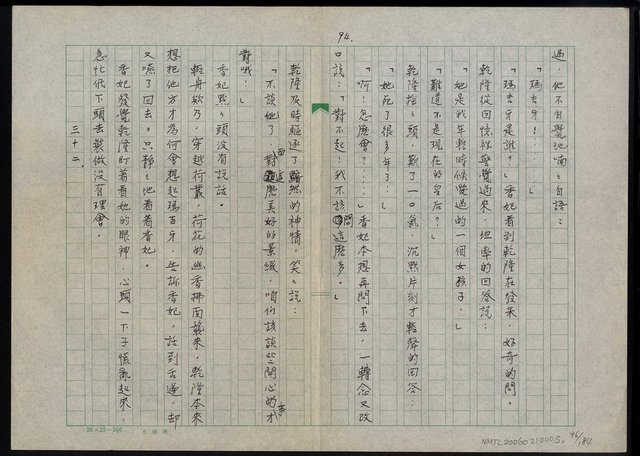 94.
過，他不自覺地喃喃自語：
「瑪古牙！……」
「瑪古牙是誰？」香妃看到乾隆在發呆，好奇的問。
乾隆從回憶裡警覺過來，坦率的回答說：
「她是我年輕時候愛過的一個女孩子。」
「難道不是現在的皇后？」
乾隆搖搖頭，歎了一口氣，沉默片刻才輕聲的回答：
「她死了很多年了。」
「啊！怎麼會？……」香妃本想再問下去，一轉念又改
口說：「對不起！我不該問這麼多。」
乾隆及時驅逐了黯然的神情，笑笑說：
「不談她了，面對這麼美好的景緻，咱們該談些開心的事才
對哦！」
香妃點點頭沒有說話。
輕舟欸乃，穿越荷叢，荷花的幽香拂面襲來，乾隆本來
想把他方才為何會想起瑪古牙，告訴香妃，話到舌邊，却
又嚥了回去。只靜靜地看着香妃。
香妃發覺乾隆盯着看她的眼神，心頭一下子慌亂起來，
急忙低下頭去裝做沒有理會。
三十二、
20×25=500
NMTL20060210005,
96/184